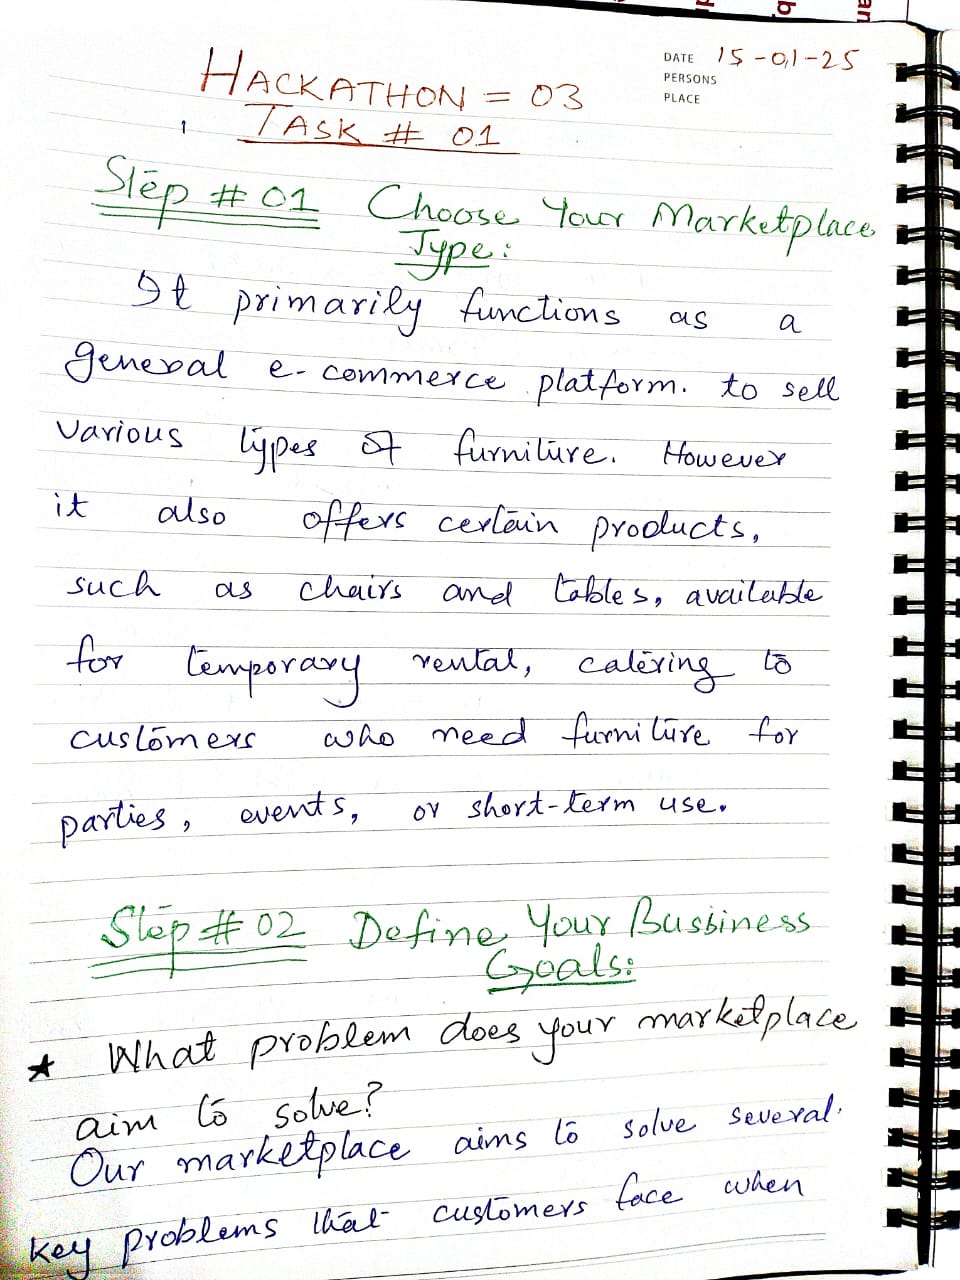 DATE 15-01-25
PERSONS
PLACE
HACKATHON = 03
TASK # 01
Step # 01 Choose Your Marketplace
Type:
It primarily functions as a
general e-commerce platform. to sell
various types of furniture. However
it also offers certain products,
such as chairs and tables, available
for temporary rental, catering to
customers who need furniture for
parties, events, or short-term use.
Step # 02 Define Your Bussiness
Goals:
★ What problem does your marketplace
aim to solve?
Our marketplace aims to solve several
key problems that customers face when